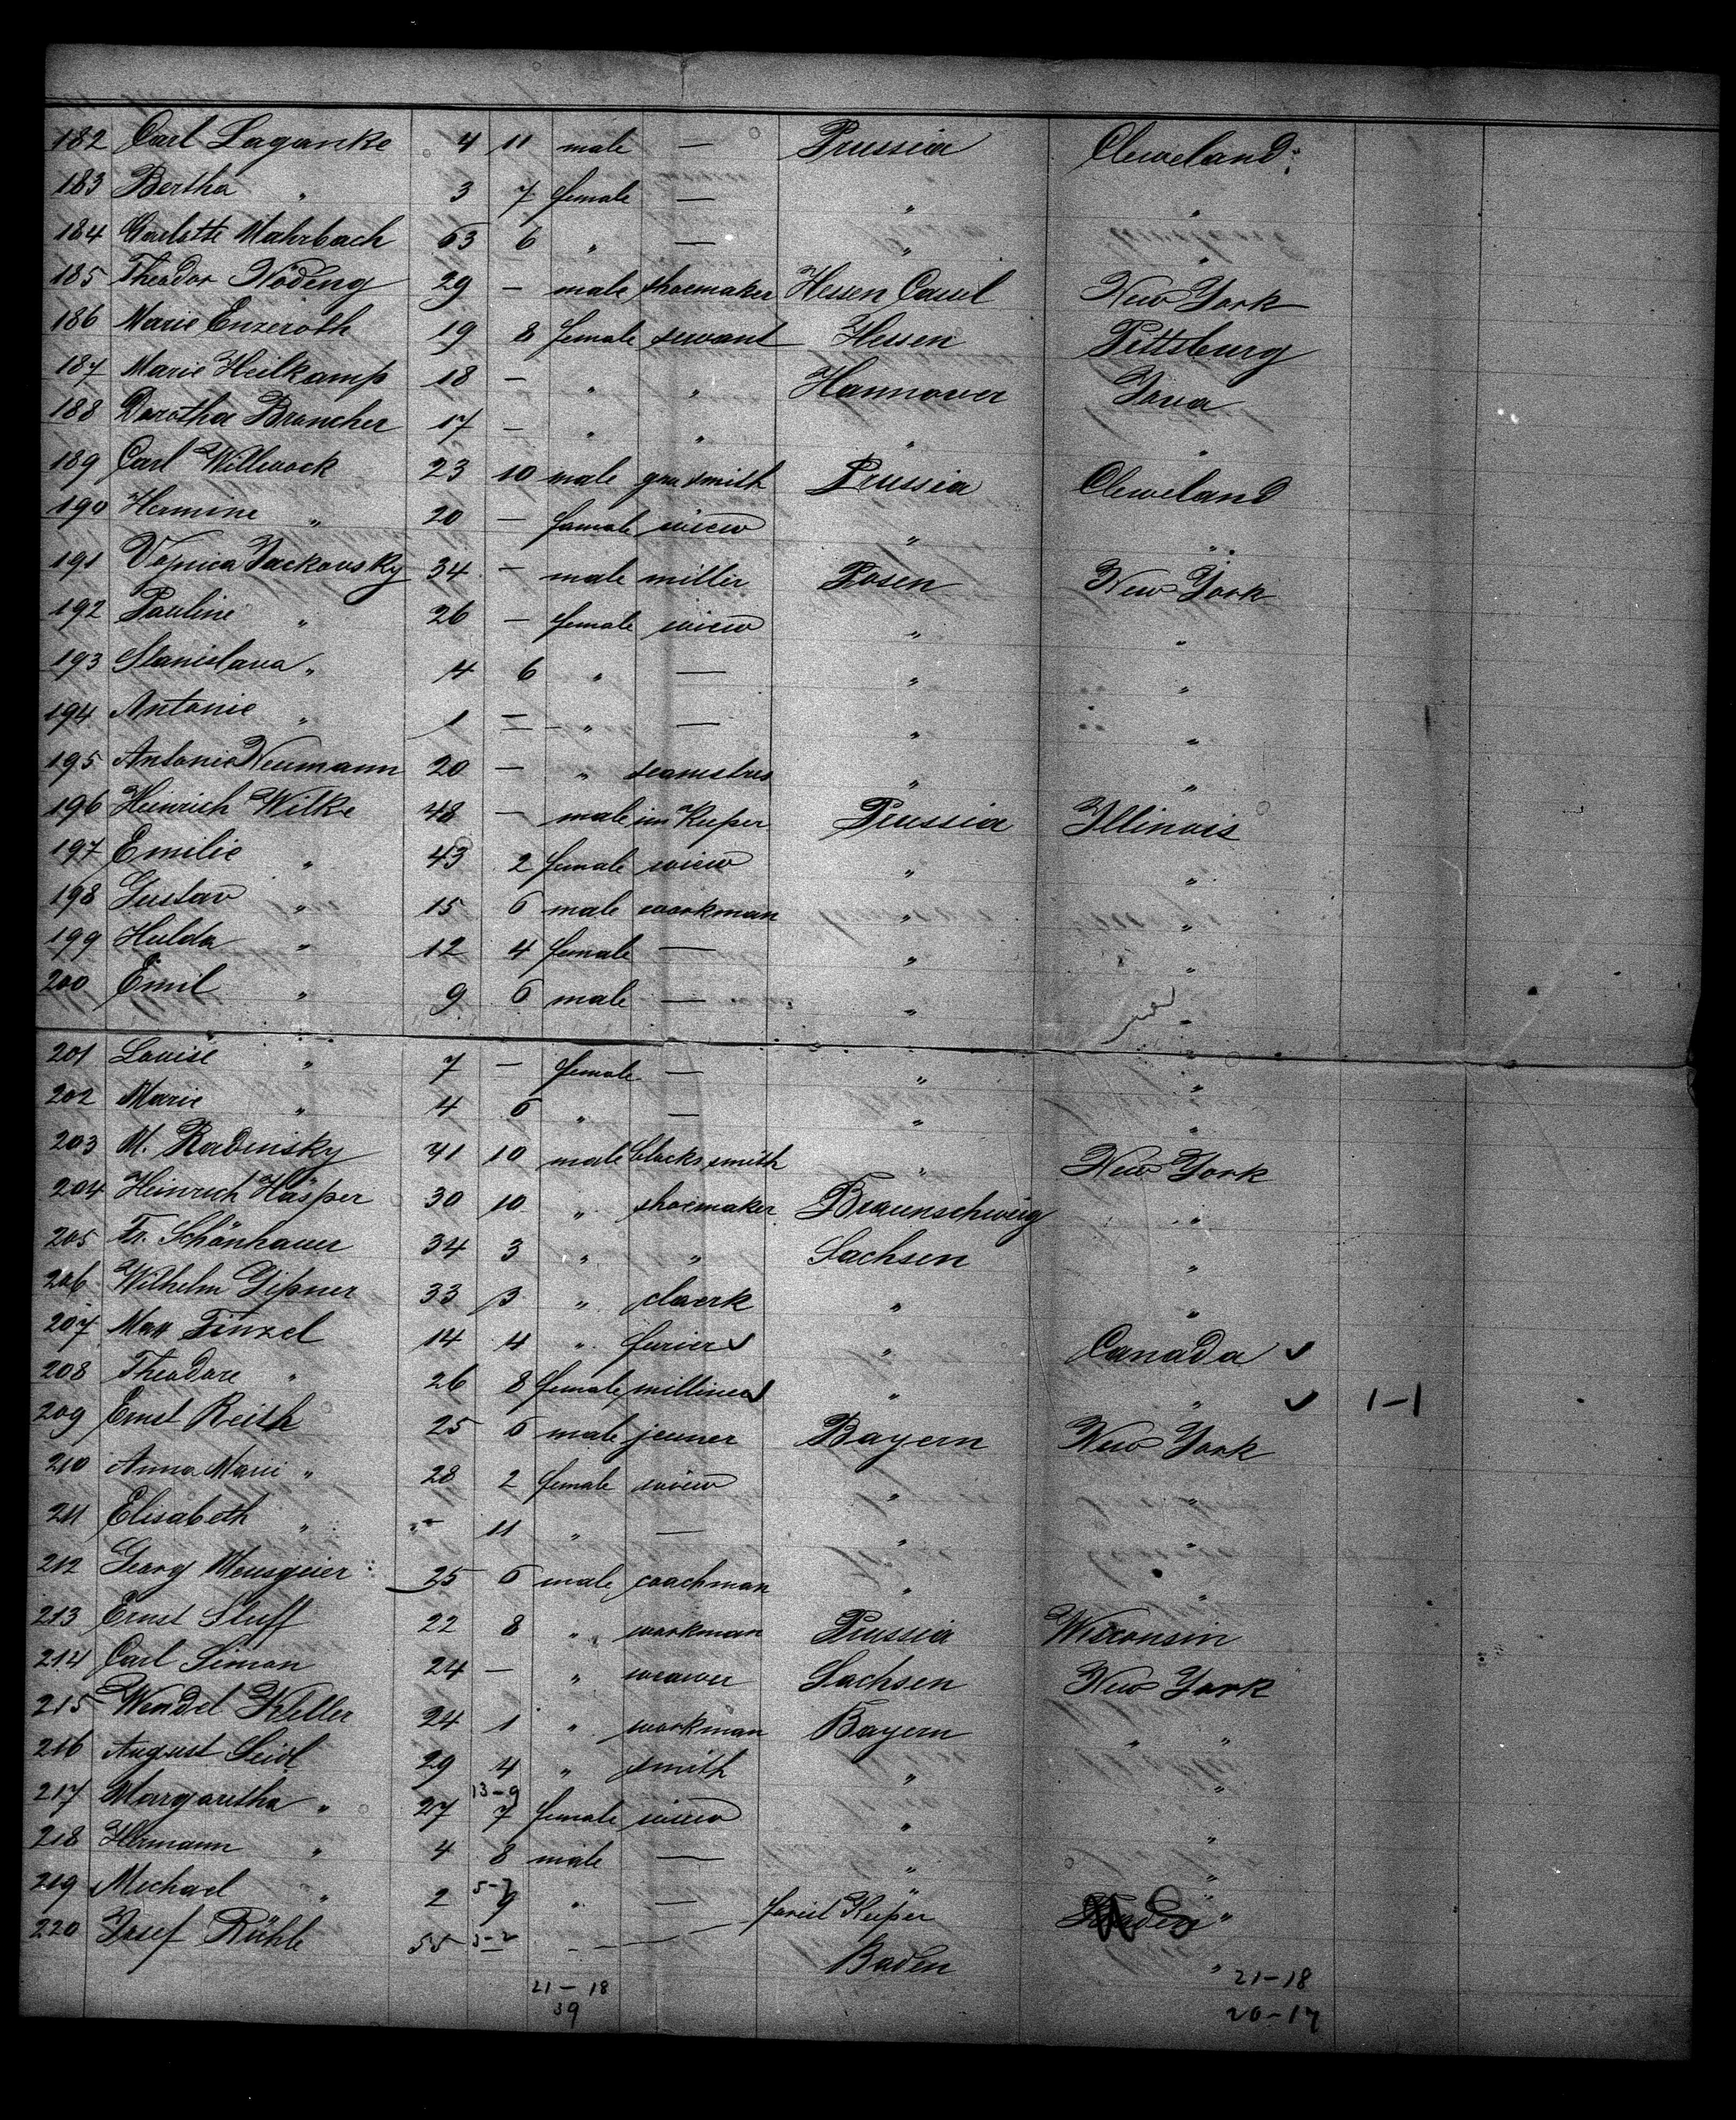 182 Carl Laganke 4 11 male — Prussia Cleveland
183 Bertha " 3 7 female — " "
184 Charlotte Mahrbach 63 6 " — " "
185 Theodor Nödeng 29 — male shoemaker Hessen Cassel New York
186 Marie Enzeroth 19 8 female servant Hessen Pittsburg
187 Marie Heilkamp 18 — " " Hannover Iowa
188 Dorotha Brancher 17 — " " " "
189 Carl Willwock 23 10 male gunsmith Prussia Cleveland
190 Hermine " 20 — female wiew " "
191 Jackovsky 34 — male miller Posen New York
192 Pauline " 26 — female wiew " "
193 Stanislava " 4 6 " — " "
194 Antonie " 1 — " — " "
195 Antonie Neumann 20 — " seamstres " "
196 Heinrich Wilke 48 — male inn Keeper Prussia Illinois
197 Emilie " 43 2 female wiew " "
198 Gustav " 15 6 male workman " "
199 Hulda " 12 4 female — " "
200 Emil " 9 6 male — " "
201 Louise " 7 — female — " "
202 Marie " 4 6 " — " "
203 M. Radinsky 41 10 male blacksmith " New York
204 Heinrich Häsper 30 10 " shoemaker Braunschweig "
205 Fr. Schönhauer 34 3 " " Sachsen "
206 Wilhelm Gipner 33 3 " claerk " "
207 Max Finzel 14 4 " furier " Canada
208 Theodore " 26 8 female milliner " " 1-1
209 Ernst Reith 25 6 male jeuner Bayern New York
210 Anna Marie " 28 2 female wiew " "
211 Elisabeth " — 11 " — " "
212 Georg Meusgeier 25 6 male coachman " "
213 Ernst Sluff 22 8 " workman Prussia Wisconsin
214 Carl Simon 24 — " weawer Sachsen New York
215 Wendel Keller 24 1 " workman Bayern " "
216 August Seidl 29 4 " smith " "
13-9
217 Margaretha " 27 7 female wiew " "
218 Hermann " 4 8 male — " "
5-7
219 Michael " 2 9 " — " "
220 Josef Rühle 55 — " — forest Keeper Baden "
21-18 21-18
39 20-17